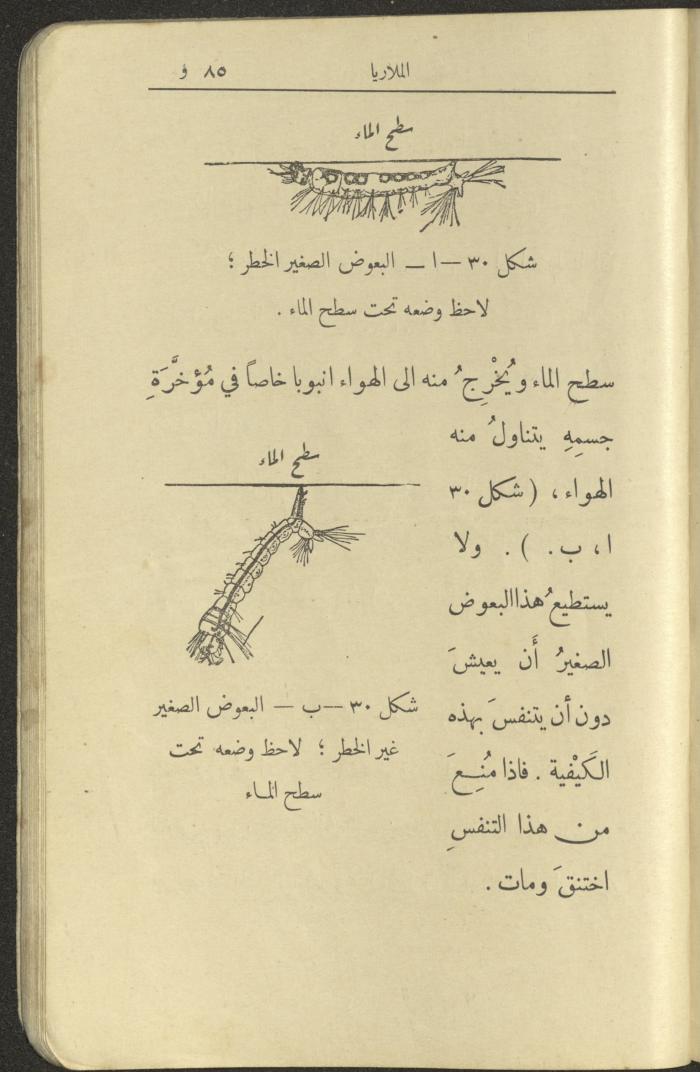 الملاريا ٨٥ و
سطح الماء
شكل ٣٠ — ا — البعوض الصغير الخطر ؛
لاحظ وضعه تحت سطح الماء .
سطح الماء ويُخْرِجُ منه الى الهواء انبوبا خاصاً في مُؤخَّرَةِ
جسمِهِ يتناولُ منه
الهواء ، ( شكل ٣٠
ا ، ب . ) . ولا
يستطيعُ هذا البعوض
الصغيرُ أَن يعيشَ
دون أن يتنفسَ بهذه
الكَيْفية . فاذا مُنِعَ
من هذا التنفسِ
اختنقَ ومات .
سطح الماء
شكل ٣٠ — ب — البعوض الصغير
غير الخطر ؛ لاحظ وضعه تحت
سطح الماء